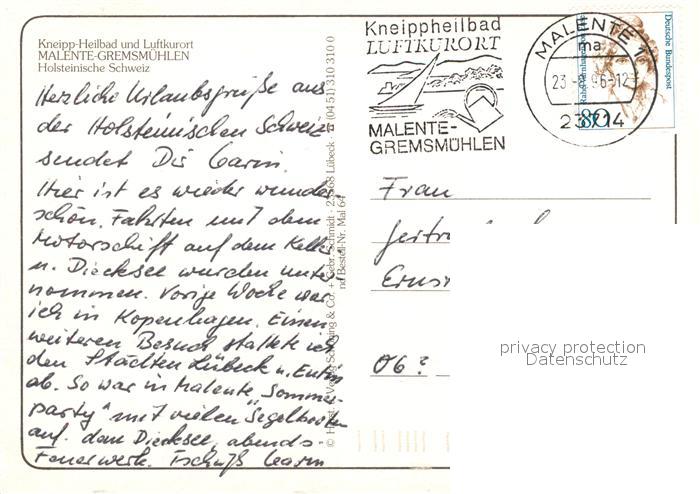 Kneipp-Heilbad und Luftkurort
MALENTE-GREMSMÜHLEN
Holsteinische Schweiz
Herzliche Urlaubsgrüße aus
der Holsteinischen Schweiz
sendet Dir Carin.
Hier ist es wieder wunder
schön. Fahrten mit dem
Motorschiff auf dem Keller
u. Dieksee wurden unter
nommen. Vorige Woche war
ich in Kopenhagen. Einen
weiteren Besuch stattete ich
den Städten Lübeck u. Eutin
ab. So war in Malente „Sommer-
party“ mit vielen Segelbooten
auf dem Dieksee, abends
Feuerwerk. Tschüß Carin
© Horst Verlag Schöning & Co. + Gebr. Schmidt · Lübeck · ☎ (04 51) 310 310 0
Bestell-Nr. Mal 64
Kneippheilbad
LUFTKURORT
MALENTE-
GREMSMÜHLEN
MALENTE 1
ma
23.-8.96-12
23714
Deutsche Bundespost
80
Frau
06?
privacy protection
Datenschutz